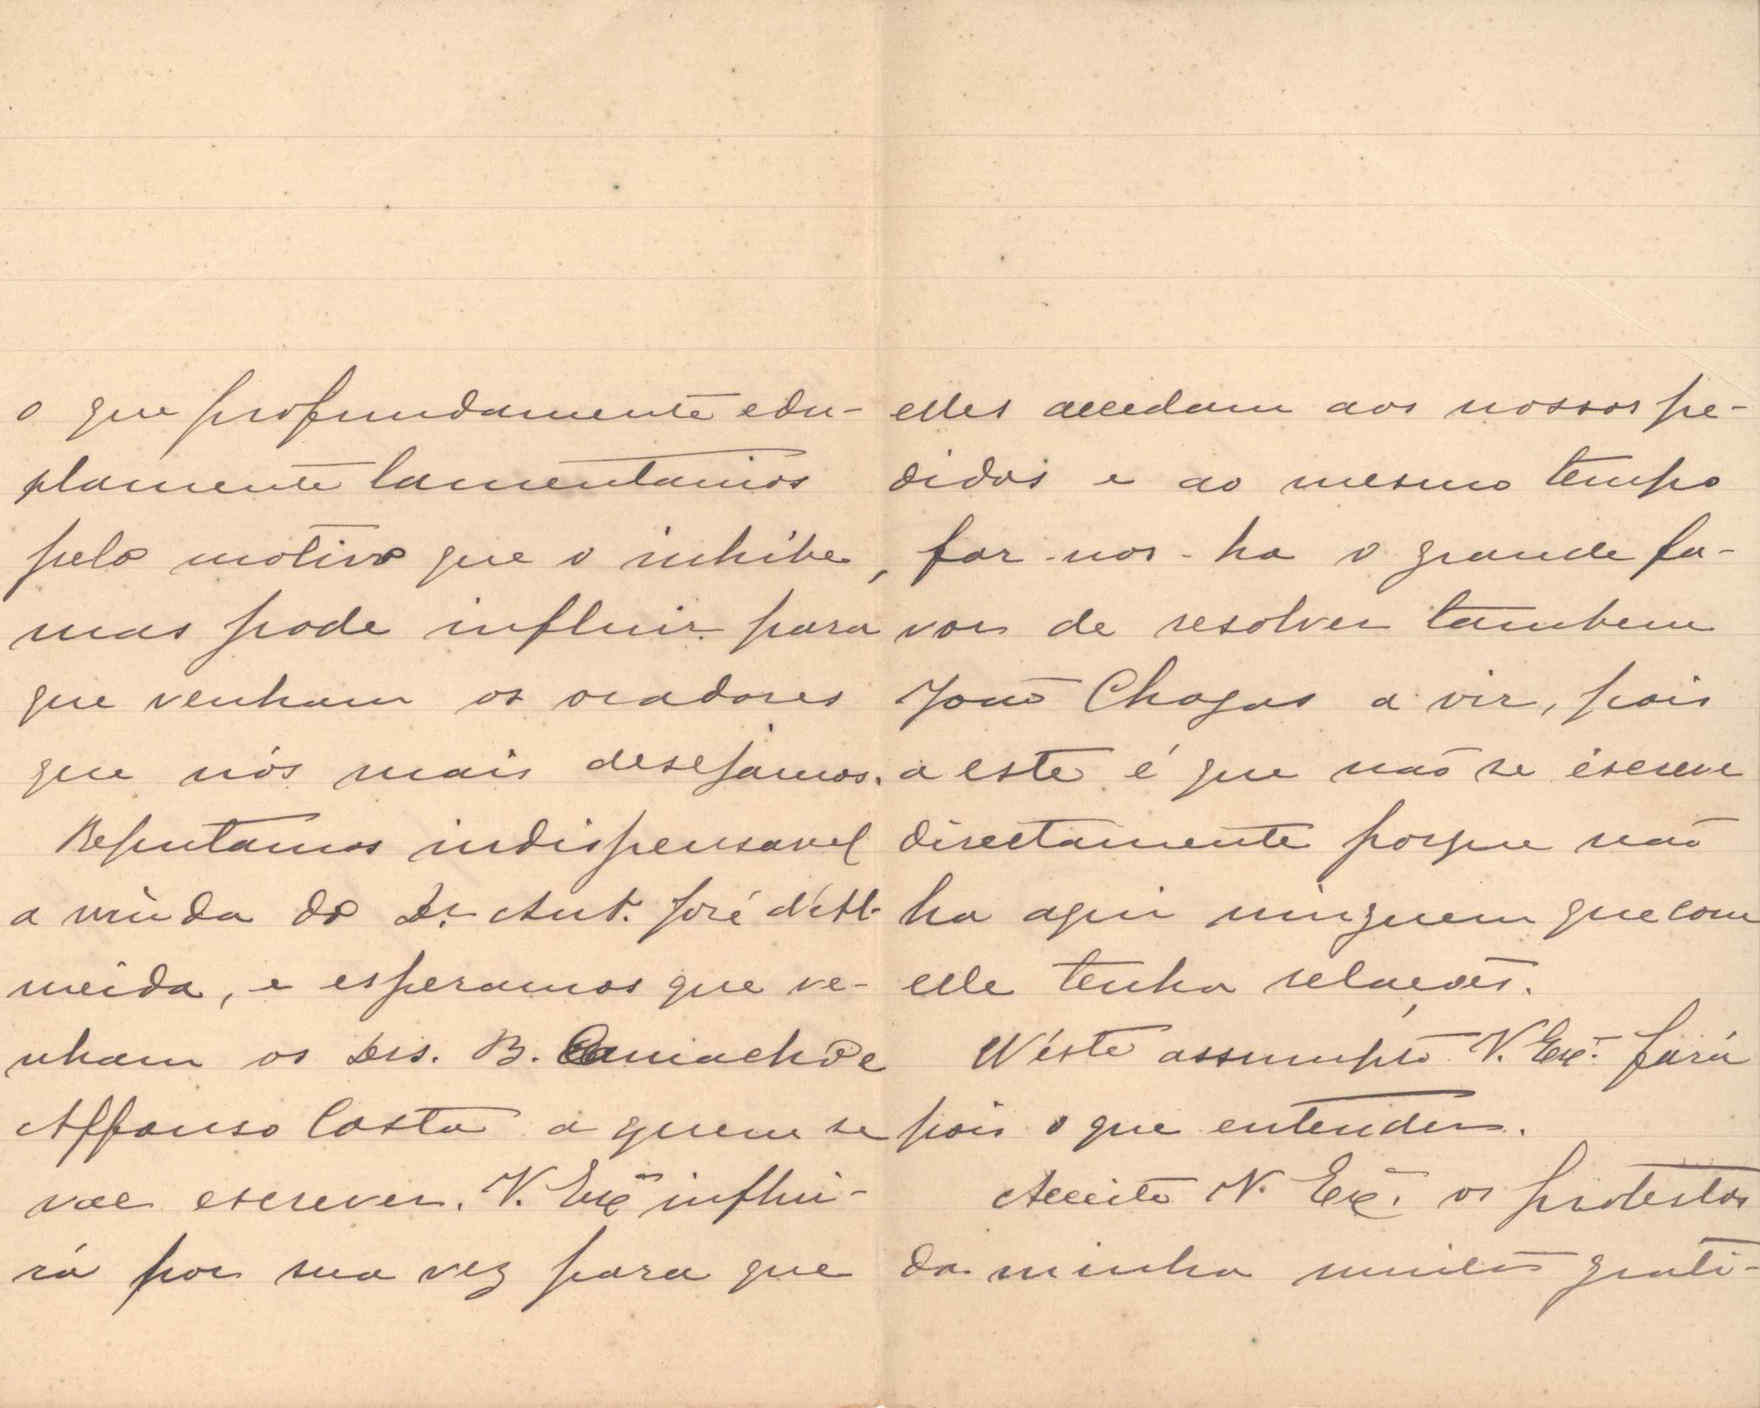 o que profundamente e du-
plamente lamentamos
pelo motivo que o inhibe,
mas pode influir para
que venham os oradores
que nós mais desejamos.
Reputamos indispensavel
a vinda do Dr. Ant. José d'Al-
meida, e esperamos que ve-
nham os Drs. B. Camacho e
Affonso Costa a quem se
vae escrever. V. Exª influi-
rá por sua vez para que
elles accedam aos nossos pe-
didos e ao mesmo tempo
far-nos-ha o grande fa-
vor de resolver tambem
João Chagas a vir, pois
a este é que não se escreve
directamente porque não
ha aqui ninguem que com
elle tenha relações.
N'este assumpto V. Exª fará
pois o que entender.
Acceite V. Exª. os protestos
da minha muita grati-